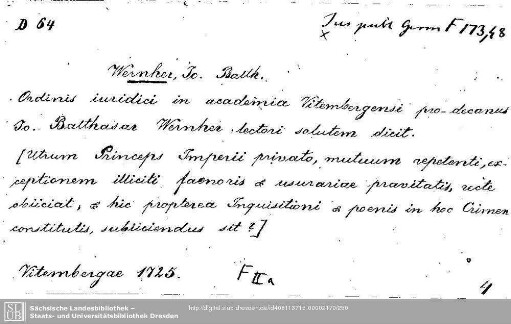 D 64
Jus publ Germ F 173,48
x
Wernher, Jo. Balth.
Ordinis iuridici in academia Vitembergensi pro-decanus
Jo. Balthasar Wernher lectori salutem dicit.
[Utrum Princeps Imperii privato, mutuum repetenti, ex-
ceptionem illiciti faenoris & usurariae pravitatis, recte
obiiciat, & hic propterea Inquisitioni & poenis in hoc Crimen
constitutis, subiiciendus sit?]
Vitembergae 1725.
F IIa
4
SLUB
Sächsische Landesbibliothek –
Staats- und Universitätsbibliothek Dresden